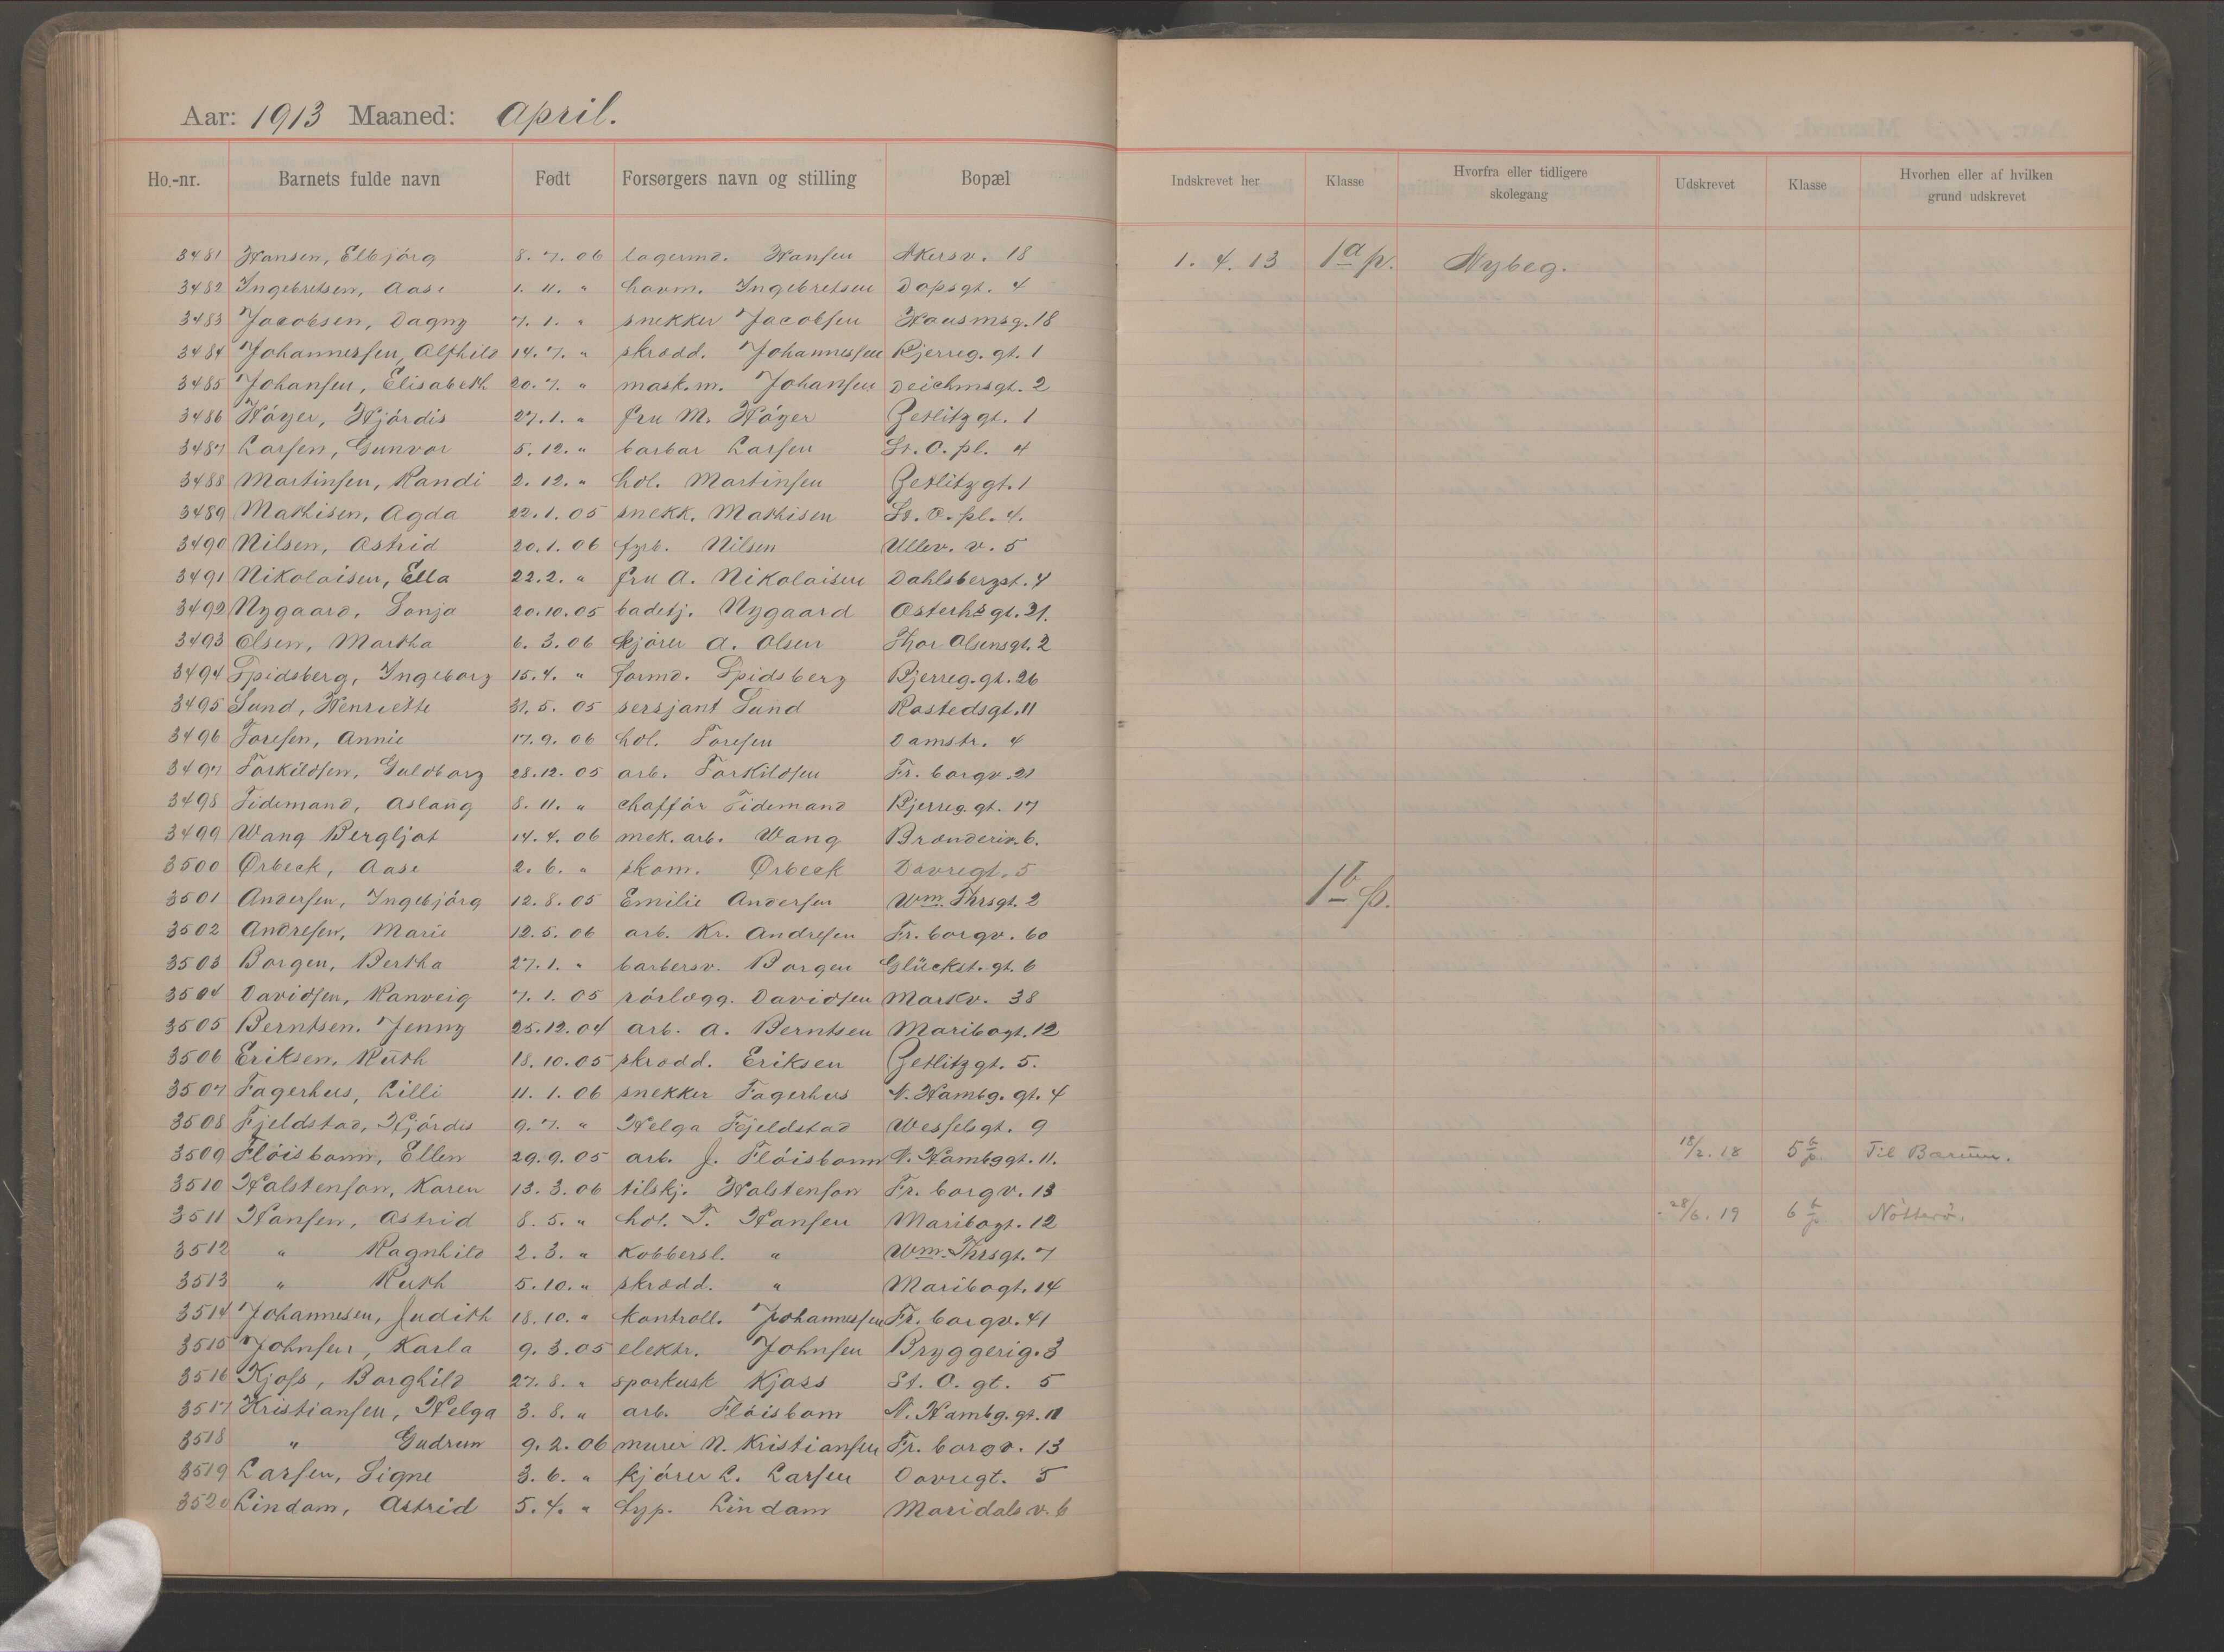 Aar: 1913 Maaned: April.
Ho.-nr. Barnets fulde navn Født Forsørgers navn og stilling Bopæl Indskrevet her Klasse Hvorfra eller tidligere skolegang Udskrevet Klasse Hvorhen eller af hvilken grund udskrevet
3481 Hansen, Elbjörg 8. 7. 06 lagermd. Hansen Akersv. 18 1. 4. 13 1a p. Nybeg.
3482 Ingebretsen, Aase 1. 11. " havm. Ingebretsen Dopsgt. 4
3483 Jacobsen, Dagny 7. 1. " snekker Jacobsen Hausmsg. 18
3484 Johannessen, Alfhild 14. 7. " skrædd. Johannessen Bjerreg. gt. 1
3485 Johansen, Elisabeth 20. 7. " mask.m. Johansen Deichmsgt. 2
3486 Höyer, Hjördis 27. 1. " fru M. Höyer Zetlitzgt. 1
3487 Larsen, Gunvor 5. 12. " barbar Larsen St. O. pl. 4
3488 Martinsen, Randi 2. 12. " hdl. Martinsen Zetlitzgt. 1
3489 Mathisen, Agda 22. 1. 05 snekk. Mathisen St. O. pl. 4.
3490 Nilsen, Astrid 20. 1. 06 fyrb. Nilsen Ullev. v. 5
3491 Nikolaisen, Ella 22. 2. " fru A. Nikolaisen Dahlsbergst. 4
3492 Nygaard, Sonja 20. 10. 05 badetj. Nygaard Osterhs gt. 21.
3493 Olsen, Martha 6. 3. 06 kjörer A. Olsen Thor Olsensgt. 2
3494 Spidsberg, Ingeborg 15. 4. " formd. Spidsberg Bjerreg. gt. 26
3495 Sund, Henriette 31. 5. 05 sersjant Sund Rostedsgt. 11
3496 Toresen, Annie 17. 9. 06 hdl. Toresen Damstr. 4
3497 Torkildsen, Guldborg 28. 12. 05 arb. Torkildsen Fr. borgv. 21
3498 Tidemand, Aslaug 8. 11. " chafför Tidemand Bjerreg. gt. 17
3499 Wang Bergljot 14. 4. 06 mek. arb. Wang Brænderiv. 6.
3500 Ørbeck, Aase 2. 6. " skom. Ørbeck Dovregt. 5
3501 Andersen, Ingebjörg 12. 8. 05 Emilie Andersen Wm. Thrsgt. 2 1b p.
3502 Andresen, Marie 12. 5. 06 arb. Kr. Andresen Fr. borgv. 60
3503 Borgen, Bertha 27. 1. " barbersv. Borgen Glückst. gt. 6
3504 Davidsen, Ranveig 7. 1. 05 rörlægg. Davidsen Markv. 38
3505 Berntsen. Jenny 25. 12. 04 arb. A. Berntsen Maribogt. 12
3506 Eriksen, Ruth 18. 10. 05 skrædd. Eriksen Zetlitzgt. 5.
3507 Fagerhus, Lilli 11. 1. 06 snekker Fagerhus N. Hambg. gt. 4
3508 Fjeldstad, Hjördis 9. 7. " Helga Fjeldstad Wesselsgt. 9
3509 Flöisbonn, Ellen 29. 9. 05 arb. J. Flöisbonn N. Hambggt. 11. 18/2. 18 5 b p. Til Bærum.
3510 Halstenson, Karen 13. 3. 06 tilskj. Halstenson Fr. borgv. 13
3511 Hansen, Astrid 8. 5. " hdl. T. Hansen Maribogt. 12 28/6. 19 6 b p Nötterö.
3512 " Ragnhild 2. 3. " kobbersl. " Wm. Thrsgt. 7
3513 " Ruth 5. 10. " skrædd. " Maribogt. 14
3514 Johannesen, Judith 18. 10. " kontroll. Johannessen Fr. borgv. 41
3515 Johnsen, Karla 9. 3. 05 elektr. Johnsen Bryggerig. 3
3516 Kjoss, Borghild 27. 8. " sporkusk Kjoss St. O. gt. 5
3517 Kristiansen, Helga 3. 8. " arb. Flöisbom N. Hambg. gt. 11
3518 " Gudrun 9. 2. 06 murer N. Kristiansen Fr. borgv. 13
3519 Larsen, Signe 3. 6. " kjörer L. Larsen Dovregt. 5
3520 Lindam, Astrid 5. 4. " typ. Lindam Maridalsv. 6